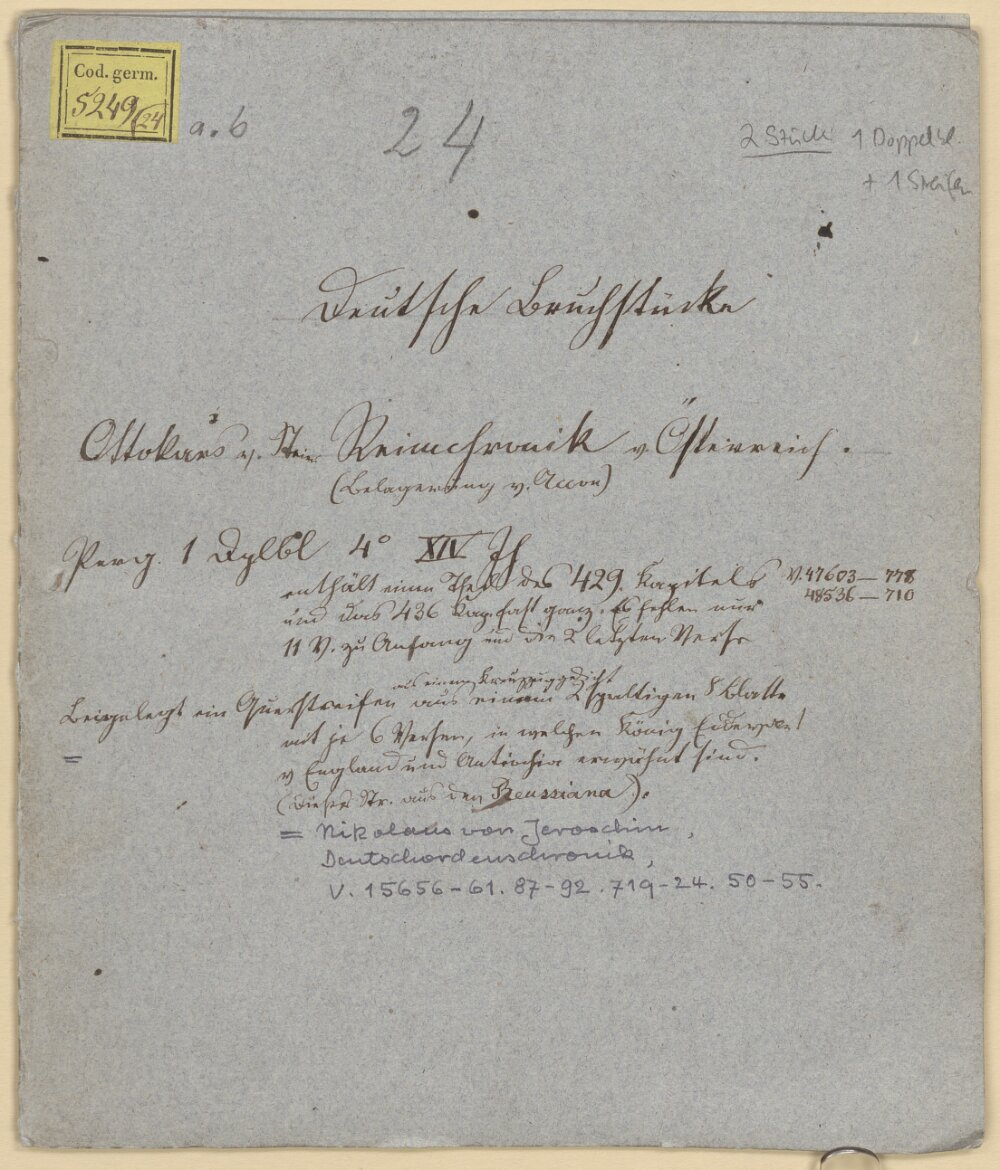 Cod. germ.
5249/24
a. b
24
2 Stück 1 Doppelbl.
+ 1 Streifen
Deutsche Bruchstücke
Ottokars v. Steier Reimchronik v. Österreich.
(Belagerung v. Accon)
Perg. 1 Dplbl 4° XIV Jh
enthält einen Theil des 429. Kapitels V. 47603 — 778
und das 436 Kap. fast ganz. Es fehlen nur 48536 — 710
11 V. zu Anfang und die 2 letzten Verse
aus einem Kreuzzugsgedicht
Beigelegt ein Querstreifen aus einem 2spaltigen 8° blatte
mit je 6 Versen, in welchen König Eduard
v England und Antiochia erwähnt sind.
(Dieser Str. aus den Reussiana).
= Nikolaus von Jeroschin,
Deutschordenschronik,
V. 15656-61. 87-92. 719-24. 50-55.